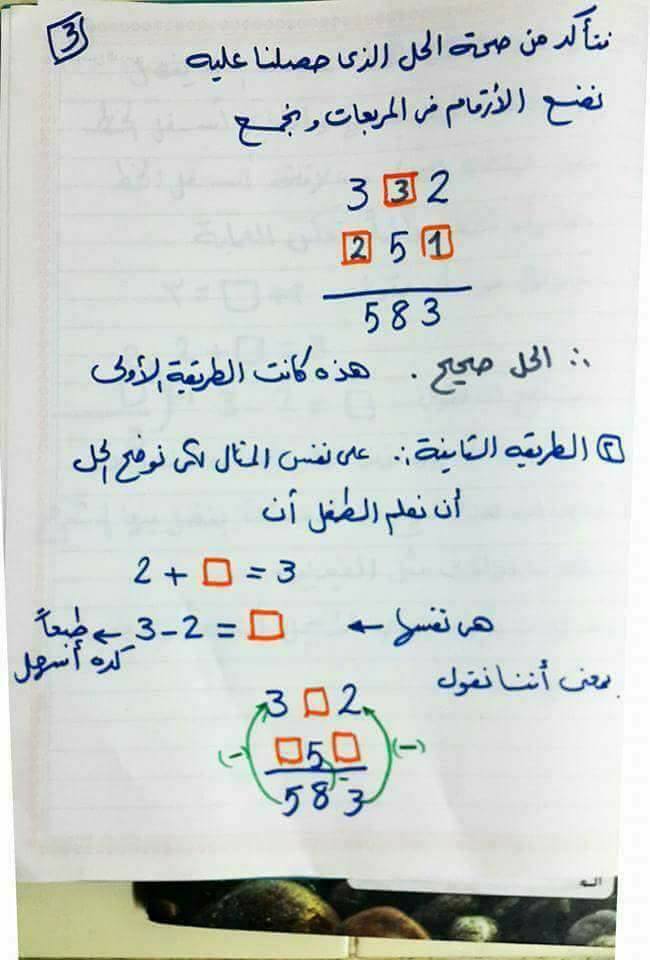 3
نتأكد من صحة الحل الذى حصلنا عليه
نضع الأرقام فى المربعات ونجمع
3 3 2
2 5 1
583
∴ الحل صحيح . هذه كانت الطريقة الأولى
٢ الطريقه الثانية ∴ على نفس المثال لكى نوضح الحل
أن نعلم الطفل أن
2 + □ = 3
هى نفسها ← 3 - 2 = □ ← طبعاً كده أسهل
بمعنى أننا نقول
3 □ 2
(-) □ 5 □ (-)
-
583